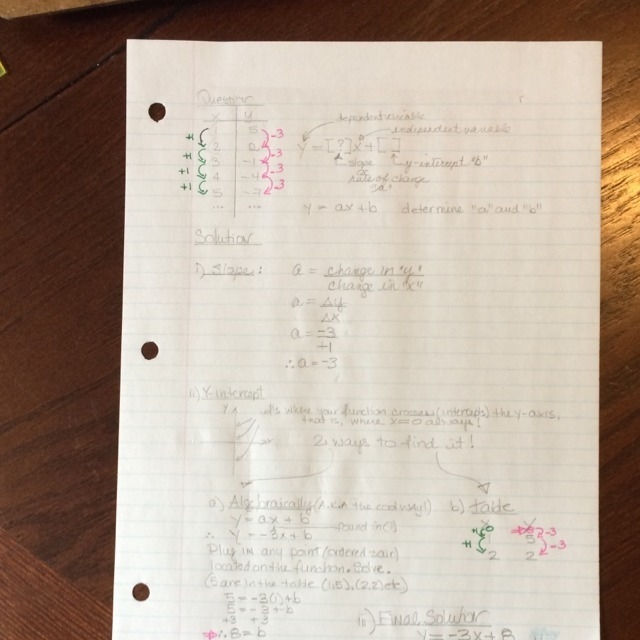 Question
x y
1 5
2 2
3 -1
4 -4
5 -7
... ...
+1 +1 +1 +1
-3 -3 -3 -3
dependent variable
independent variable
y = [?]x + [ ]
slope
y-intercept "b"
rate of change
"a"
y = ax + b determine "a" and "b"
Solution
i) Slope: a = change in "y"
change in "x"
a = Δy
Δx
a = -3
+1
∴ a = -3
ii) Y-intercept
y
It's where your function crosses (intercepts) the y-axis,
that is, where x=0 always!
2 ways to find it!
a) Algebraically (A.K.A the cool way!)
y = ax + b
found in (i)
∴ y = -3x + b
Plug in any point (ordered pair)
located on the function. Solve.
(5 are in the table (1,5), (2,2) etc)
5 = -3(1) + b
5 = -3 + b
+3 +3
∴ 8 = b
b) Table
x y
+1 +1
1 5
2 2
-3
-3
iii) Final Solution
y = -3x + 8